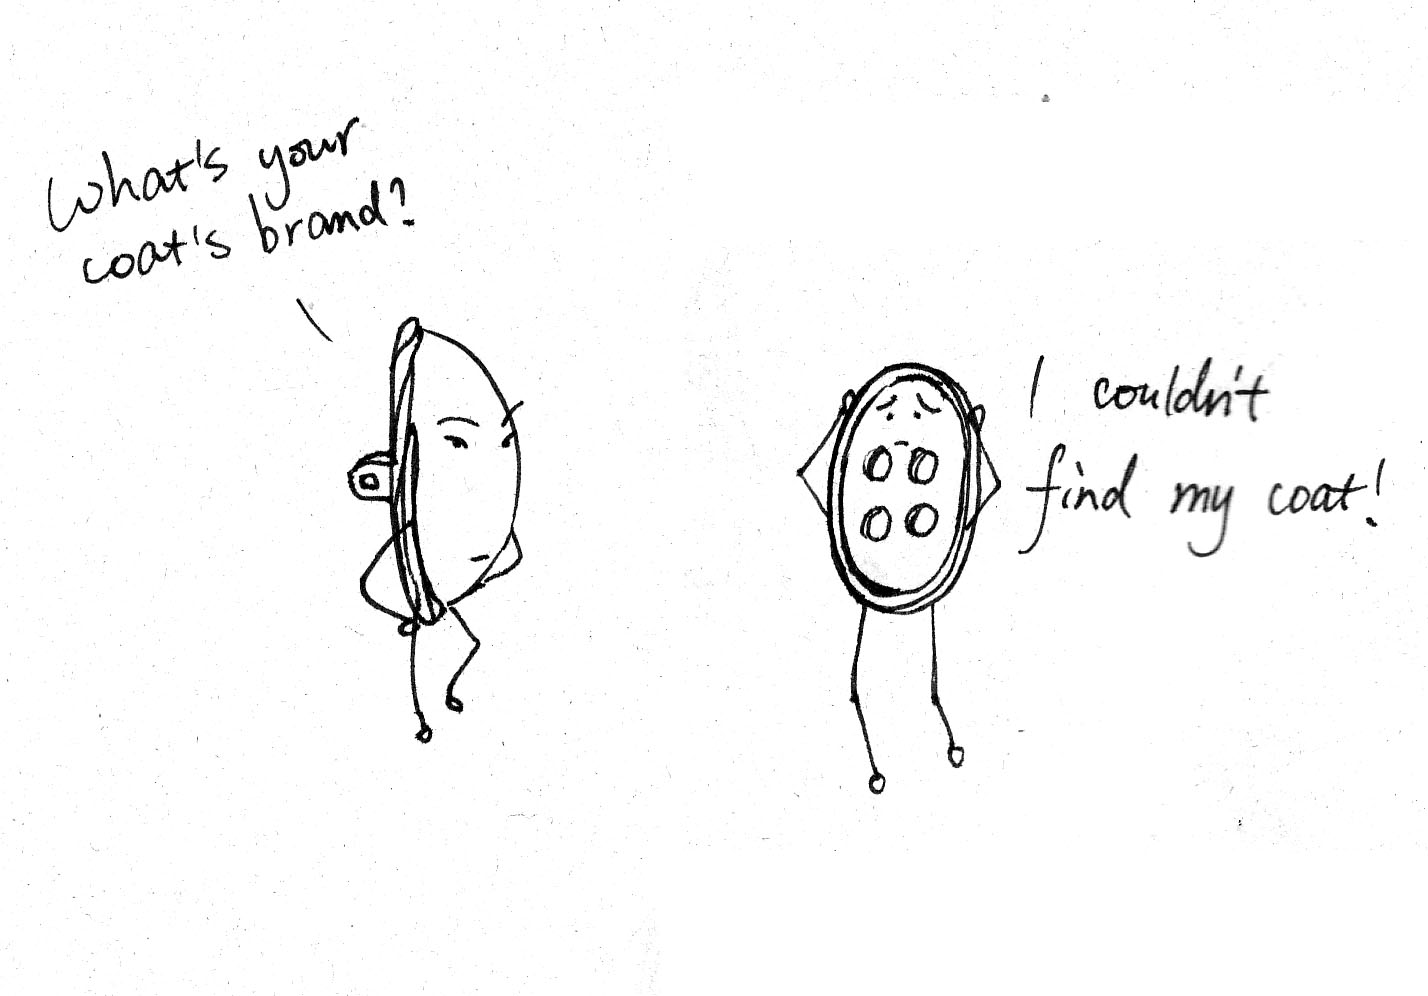 What's your
coat's brand?
I couldn't
find my coat!